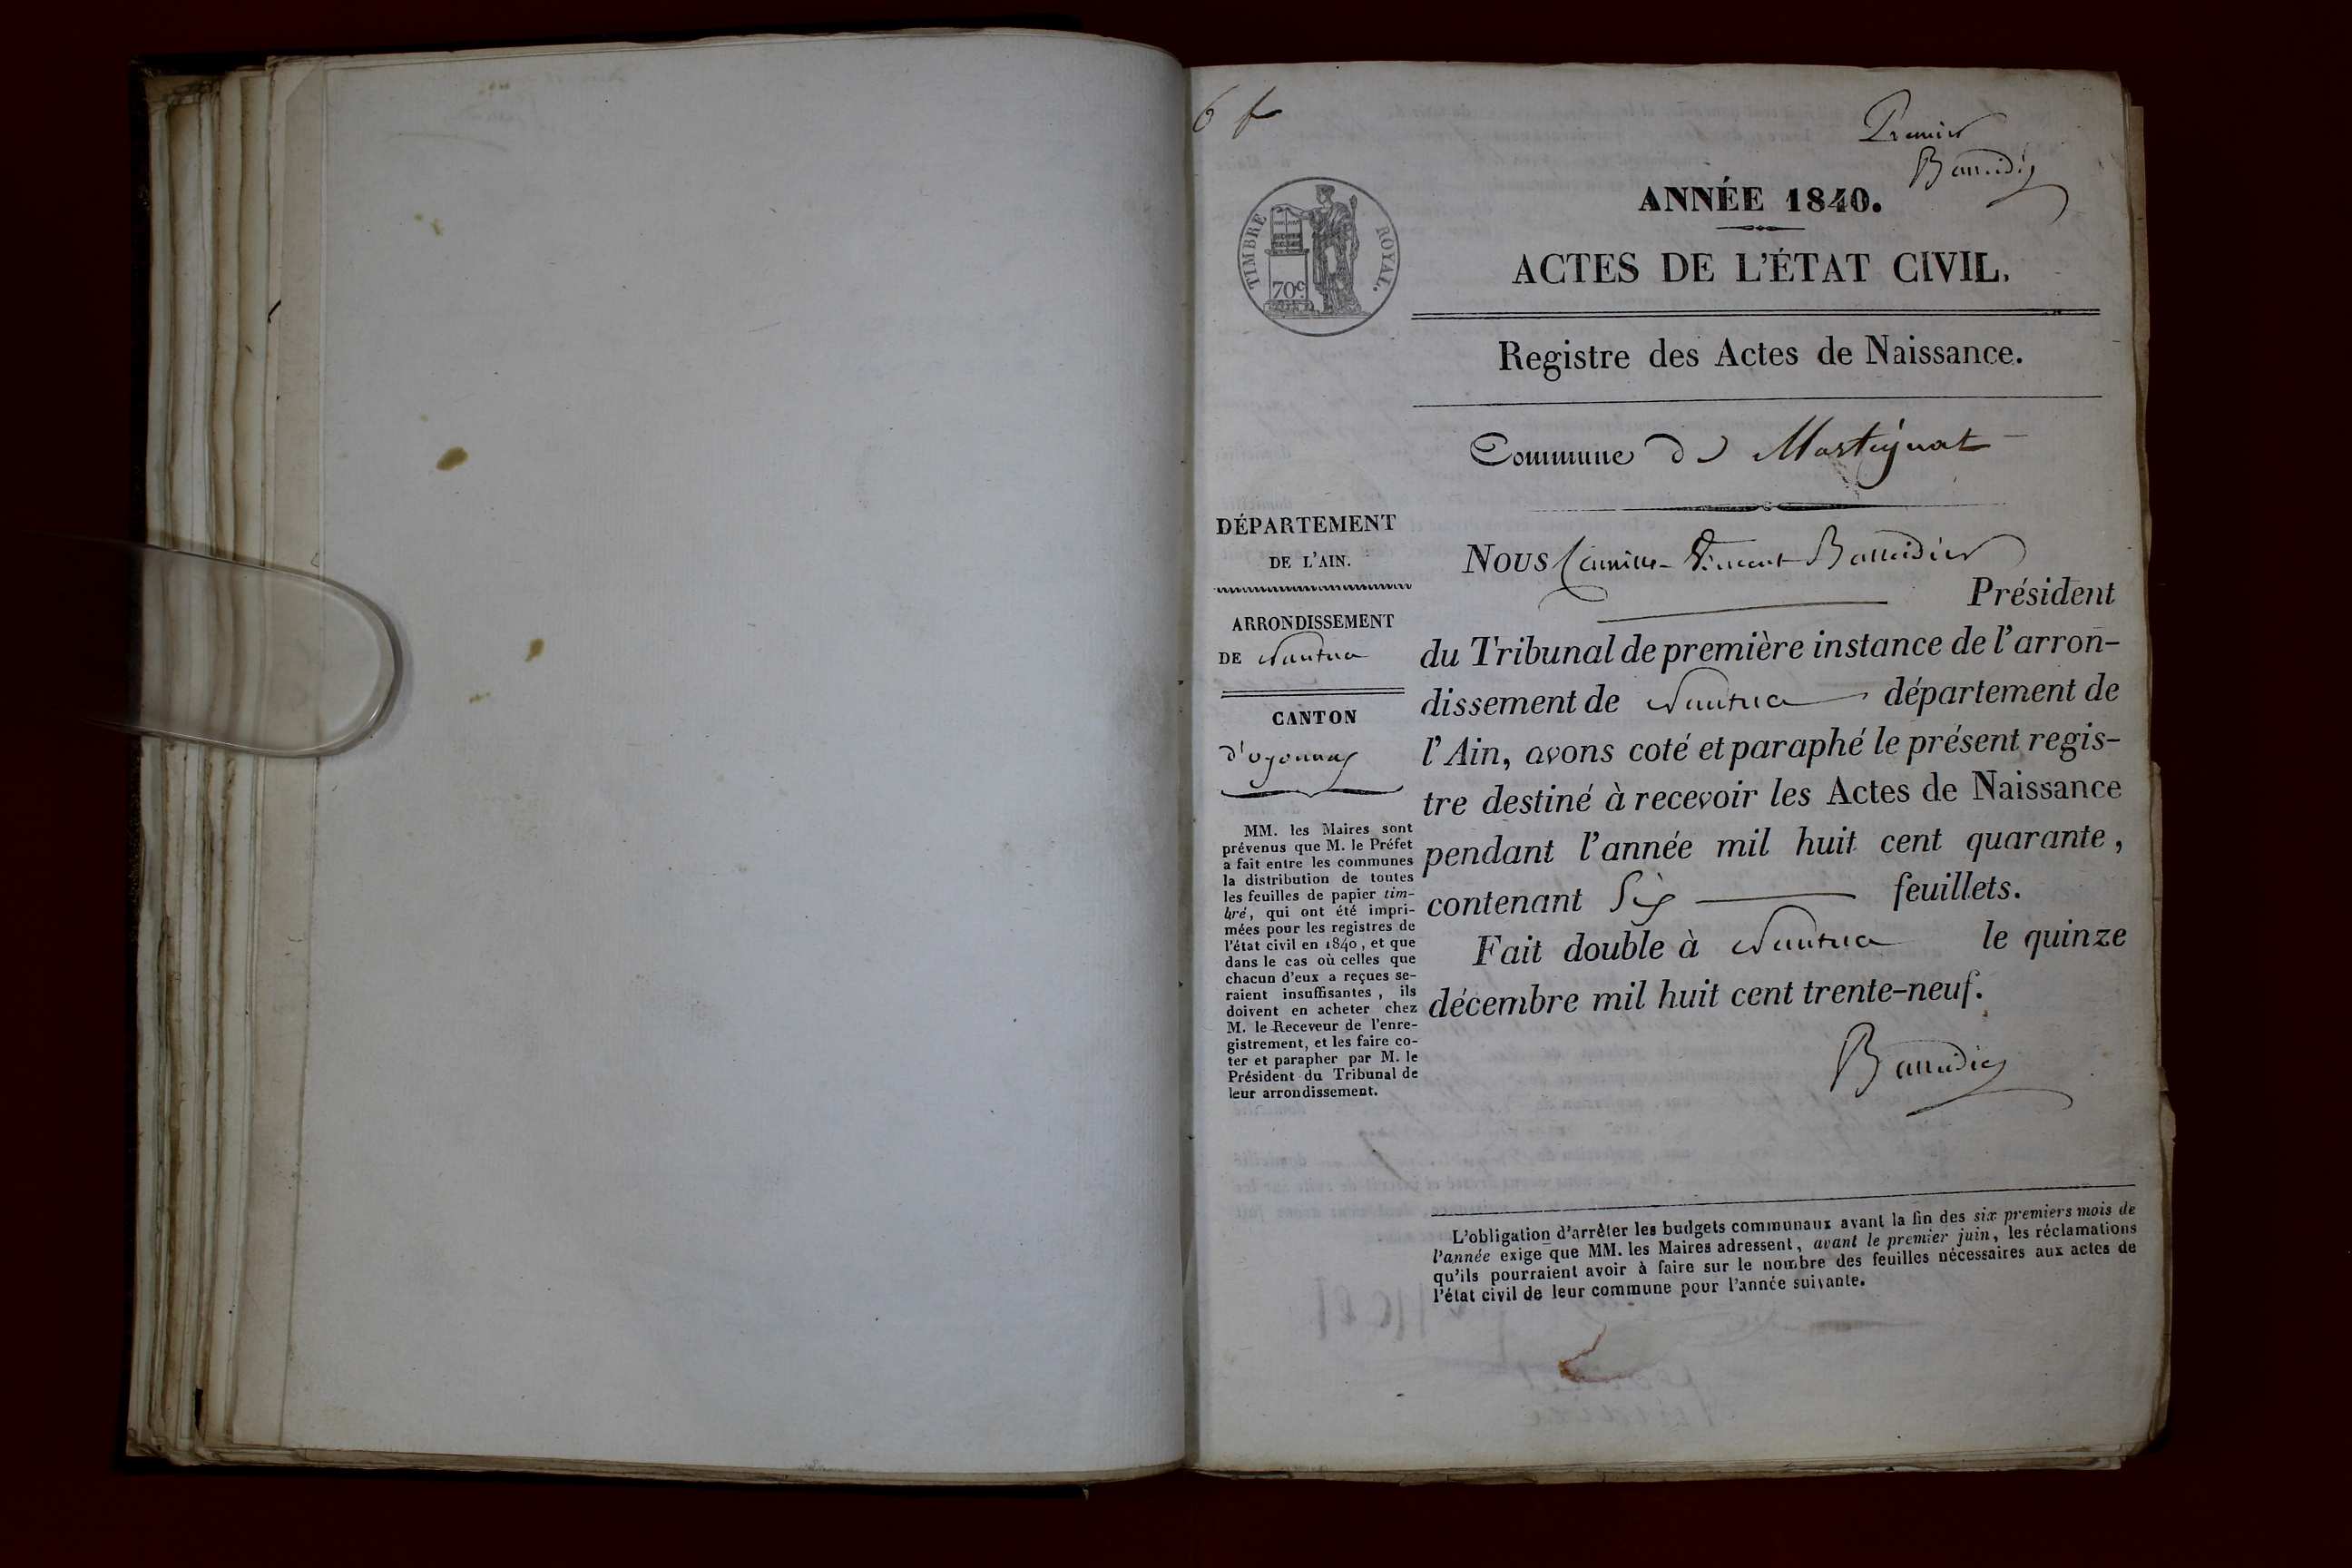 6 f
Premier
Baudier
ANNÉE 1840.
TIMBRE ROYAL.
70c
ACTES DE L'ÉTAT CIVIL.
Registre des Actes de Naissance.
Commune de Martignat
DÉPARTEMENT
DE L'AIN.
ARRONDISSEMENT
DE Nantua
CANTON
d'oyonnax
MM. les Maires sont
prévenus que M. le Préfet
a fait entre les communes
la distribution de toutes
les feuilles de papier tim-
bré, qui ont été impri-
mées pour les registres de
l'état civil en 1840, et que
dans le cas où celles que
chacun d'eux a reçues se-
raient insuffisantes, ils
doivent en acheter chez
M. le Receveur de l'enre-
gistrement, et les faire co-
ter et parapher par M. le
Président du Tribunal de
leur arrondissement.
Nous Camille-Vincent
Président
du Tribunal de première instance de l'arron-
dissement de Nantua département de
l'Ain, avons coté et paraphé le présent regis-
tre destiné à recevoir les Actes de Naissance
pendant l'année mil huit cent quarante,
contenant Six feuillets.
Fait double à Nantua le quinze
décembre mil huit cent trente-neuf.
L'obligation d'arrêter les budgets communaux avant la fin des six premiers mois de
l'année exige que MM. les Maires adressent, avant le premier juin, les réclamations
qu'ils pourraient avoir à faire sur le nombre des feuilles nécessaires aux actes de
l'état civil de leur commune pour l'année suivante.